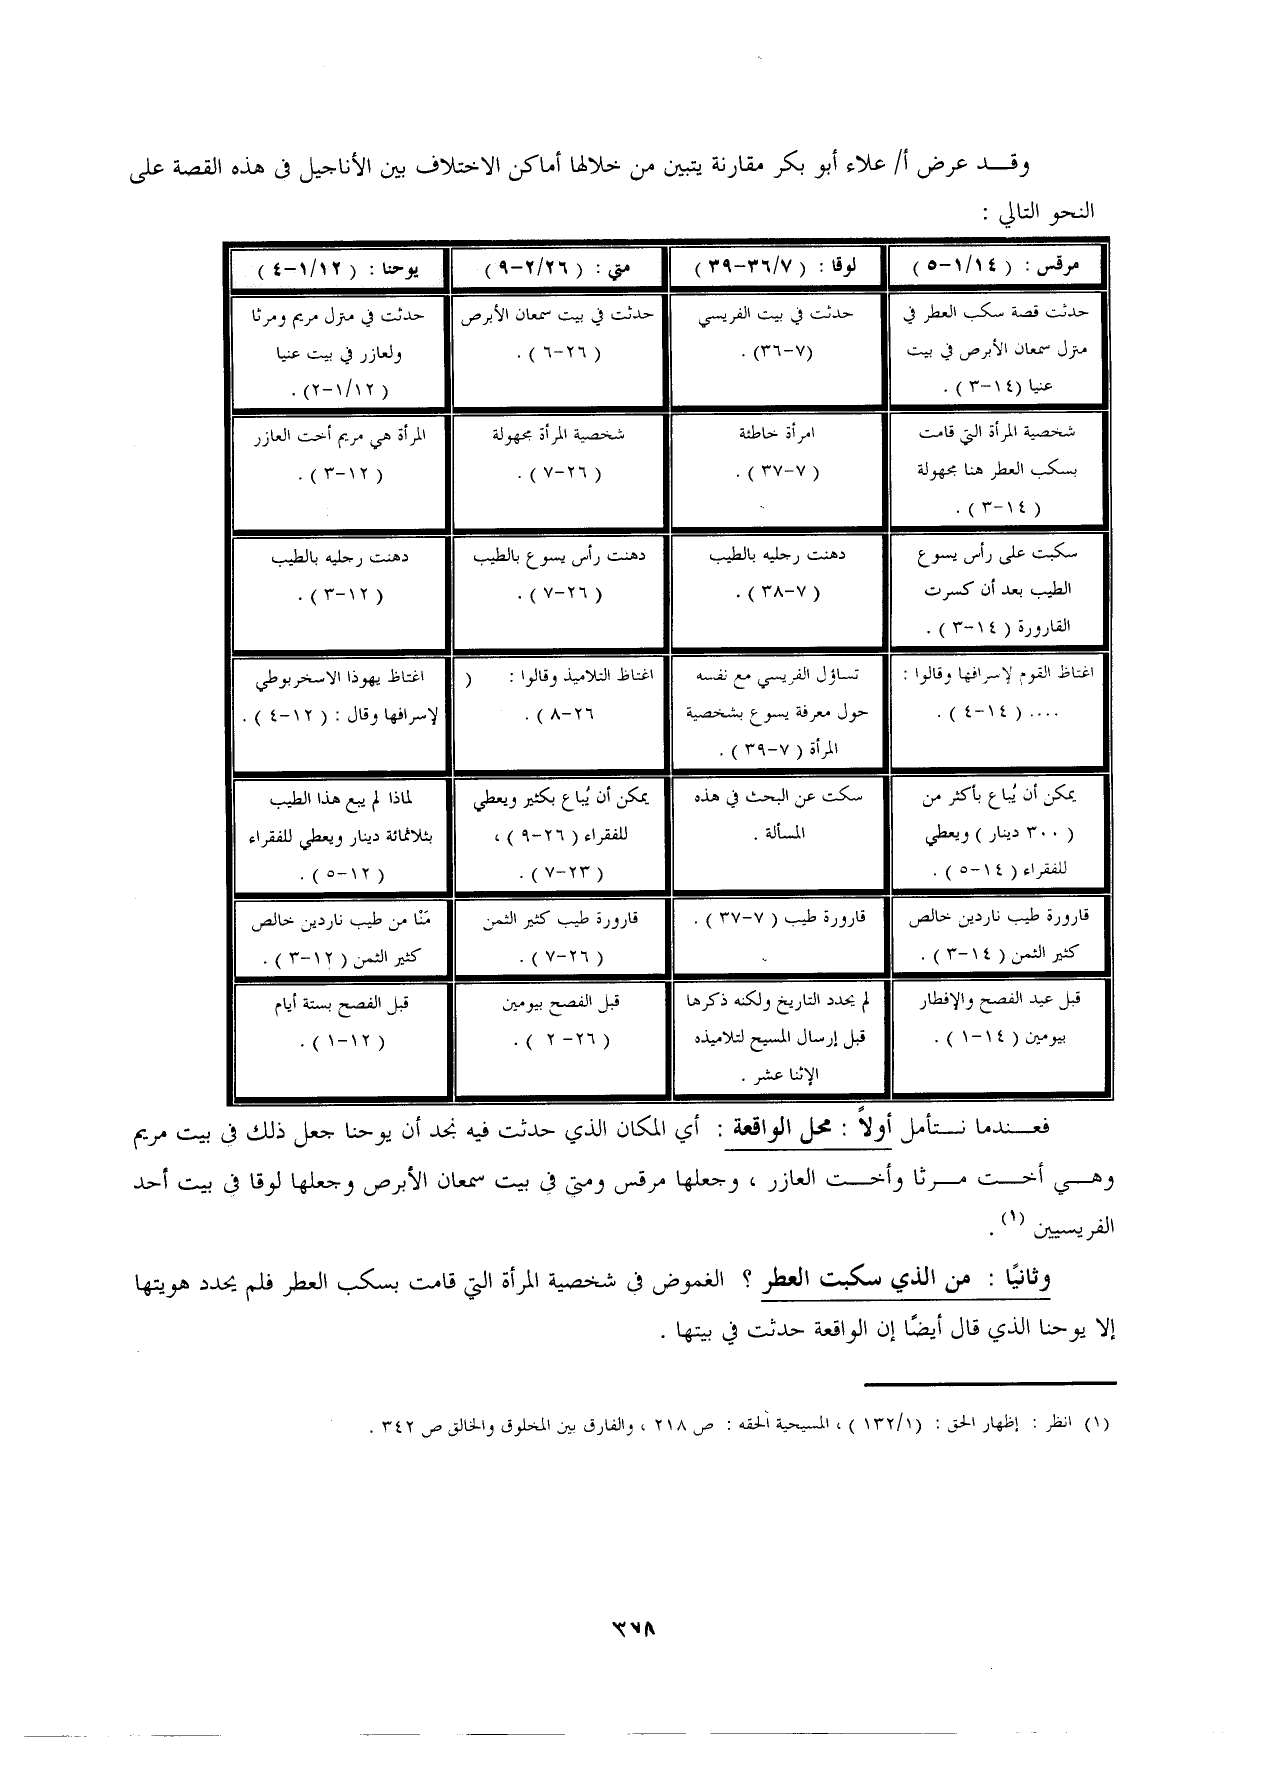 وقـــد عرض أ/ علاء أبو بكر مقارنة يتبين من خلالها أماكن الاختلاف بين الأناجيل فى هذه القصة على
النحو التالي :
مرقس : ( ١/١٤-٥ )
لوقا : ( ٣٦/٧-٣٩ )
متي : ( ٢/٢٦-٩ )
يوحنا : ( ١/١٢-٤ )
حدثت قصة سكب العطر في
منزل سمعان الأبرص في بيت
عنيا (١٤-٣ ) .
حدثت في بيت الفريسي
(٧-٣٦) .
حدثت في بيت سمعان الأبرص
( ٢٦-٦ ) .
حدثت في منزل مريم ومرثا
ولعازر في بيت عنيا
( ١/١٢-٢) .
شخصية المرأة التي قامت
بسكب العطر هنا مجهولة
( ١٤-٣ ) .
امرأة خاطئة
( ٧-٣٧ ) .
شخصية المرأة مجهولة
( ٢٦-٧ ) .
المرأة هي مريم أخت العازر
( ١٢-٣ ) .
سكبت على رأس يسوع
الطيب بعد أن كسرت
القارورة ( ١٤-٣ ) .
دهنت رجليه بالطيب
( ٧-٣٨ ) .
دهنت رأس يسوع بالطيب
( ٢٦-٧ ) .
دهنت رجليه بالطيب
( ١٢-٣ ) .
اغتاظ القوم لإسرافها وقالوا :
.... ( ١٤-٤ ) .
تساؤل الفريسي مع نفسه
حول معرفة يسوع بشخصية
المرأة ( ٧-٣٩ ) .
اغتاظ التلاميذ وقالوا : (
٢٦-٨ ) .
اغتاظ يهوذا الاسخربوطي
لإسرافها وقال : ( ١٢-٤ ) .
يمكن أن يُباع بأكثر من
( ٣٠٠ دينار ) ويعطي
للفقراء ( ١٤-٥ ) .
سكت عن البحث في هذه
المسألة .
يمكن أن يُباع بكثير ويعطي
للفقراء ( ٢٦-٩ ) ،
( ٢٣-٧ ) .
لماذا لم يبع هذا الطيب
بثلاثمائة دينار ويعطي للفقراء
( ١٢-٥ ) .
قارورة طيب ناردين خالص
كثير الثمن ( ١٤-٣ ) .
قارورة طيب ( ٧-٣٧ ) .
قارورة طيب كثير الثمن
( ٢٦-٧ ) .
مَنًا من طيب ناردين خالص
كثير الثمن ( ١٢-٣ ) .
قبل عيد الفصح والإفطار
بيومين ( ١٤-١ ) .
لم يحدد التاريخ ولكنه ذكرها
قبل إرسال المسيح لتلاميذه
الإثنا عشر .
قبل الفصح بيومين
( ٢٦- ٢ ) .
قبل الفصح بستة أيام
( ١٢-١ ) .
فعـــندما نـــتأمل أولاً : محل الواقعة : أي المكان الذي حدثت فيه نجد أن يوحنا جعل ذلك فى بيت مريم
وهـــي أخـــت مـــرثا وأخـــت العازر ، وجعلها مرقس ومتي فى بيت سمعان الأبرص وجعلها لوقا فى بيت أحد
الفريسيين (١) .
وثانيًا : من الذي سكبت العطر ؟ الغموض فى شخصية المرأة التي قامت بسكب العطر فلم يحدد هويتها
إلا يوحنا الذي قال أيضًا إن الواقعة حدثت في بيتها .
(١) انظر : إظهار الحق : (١٣٢/١ ) ، المسيحية ألحقه : ص ٢١٨ ، والفارق بين المخلوق والخالق ص ٣٤٢ .
٣٧٨